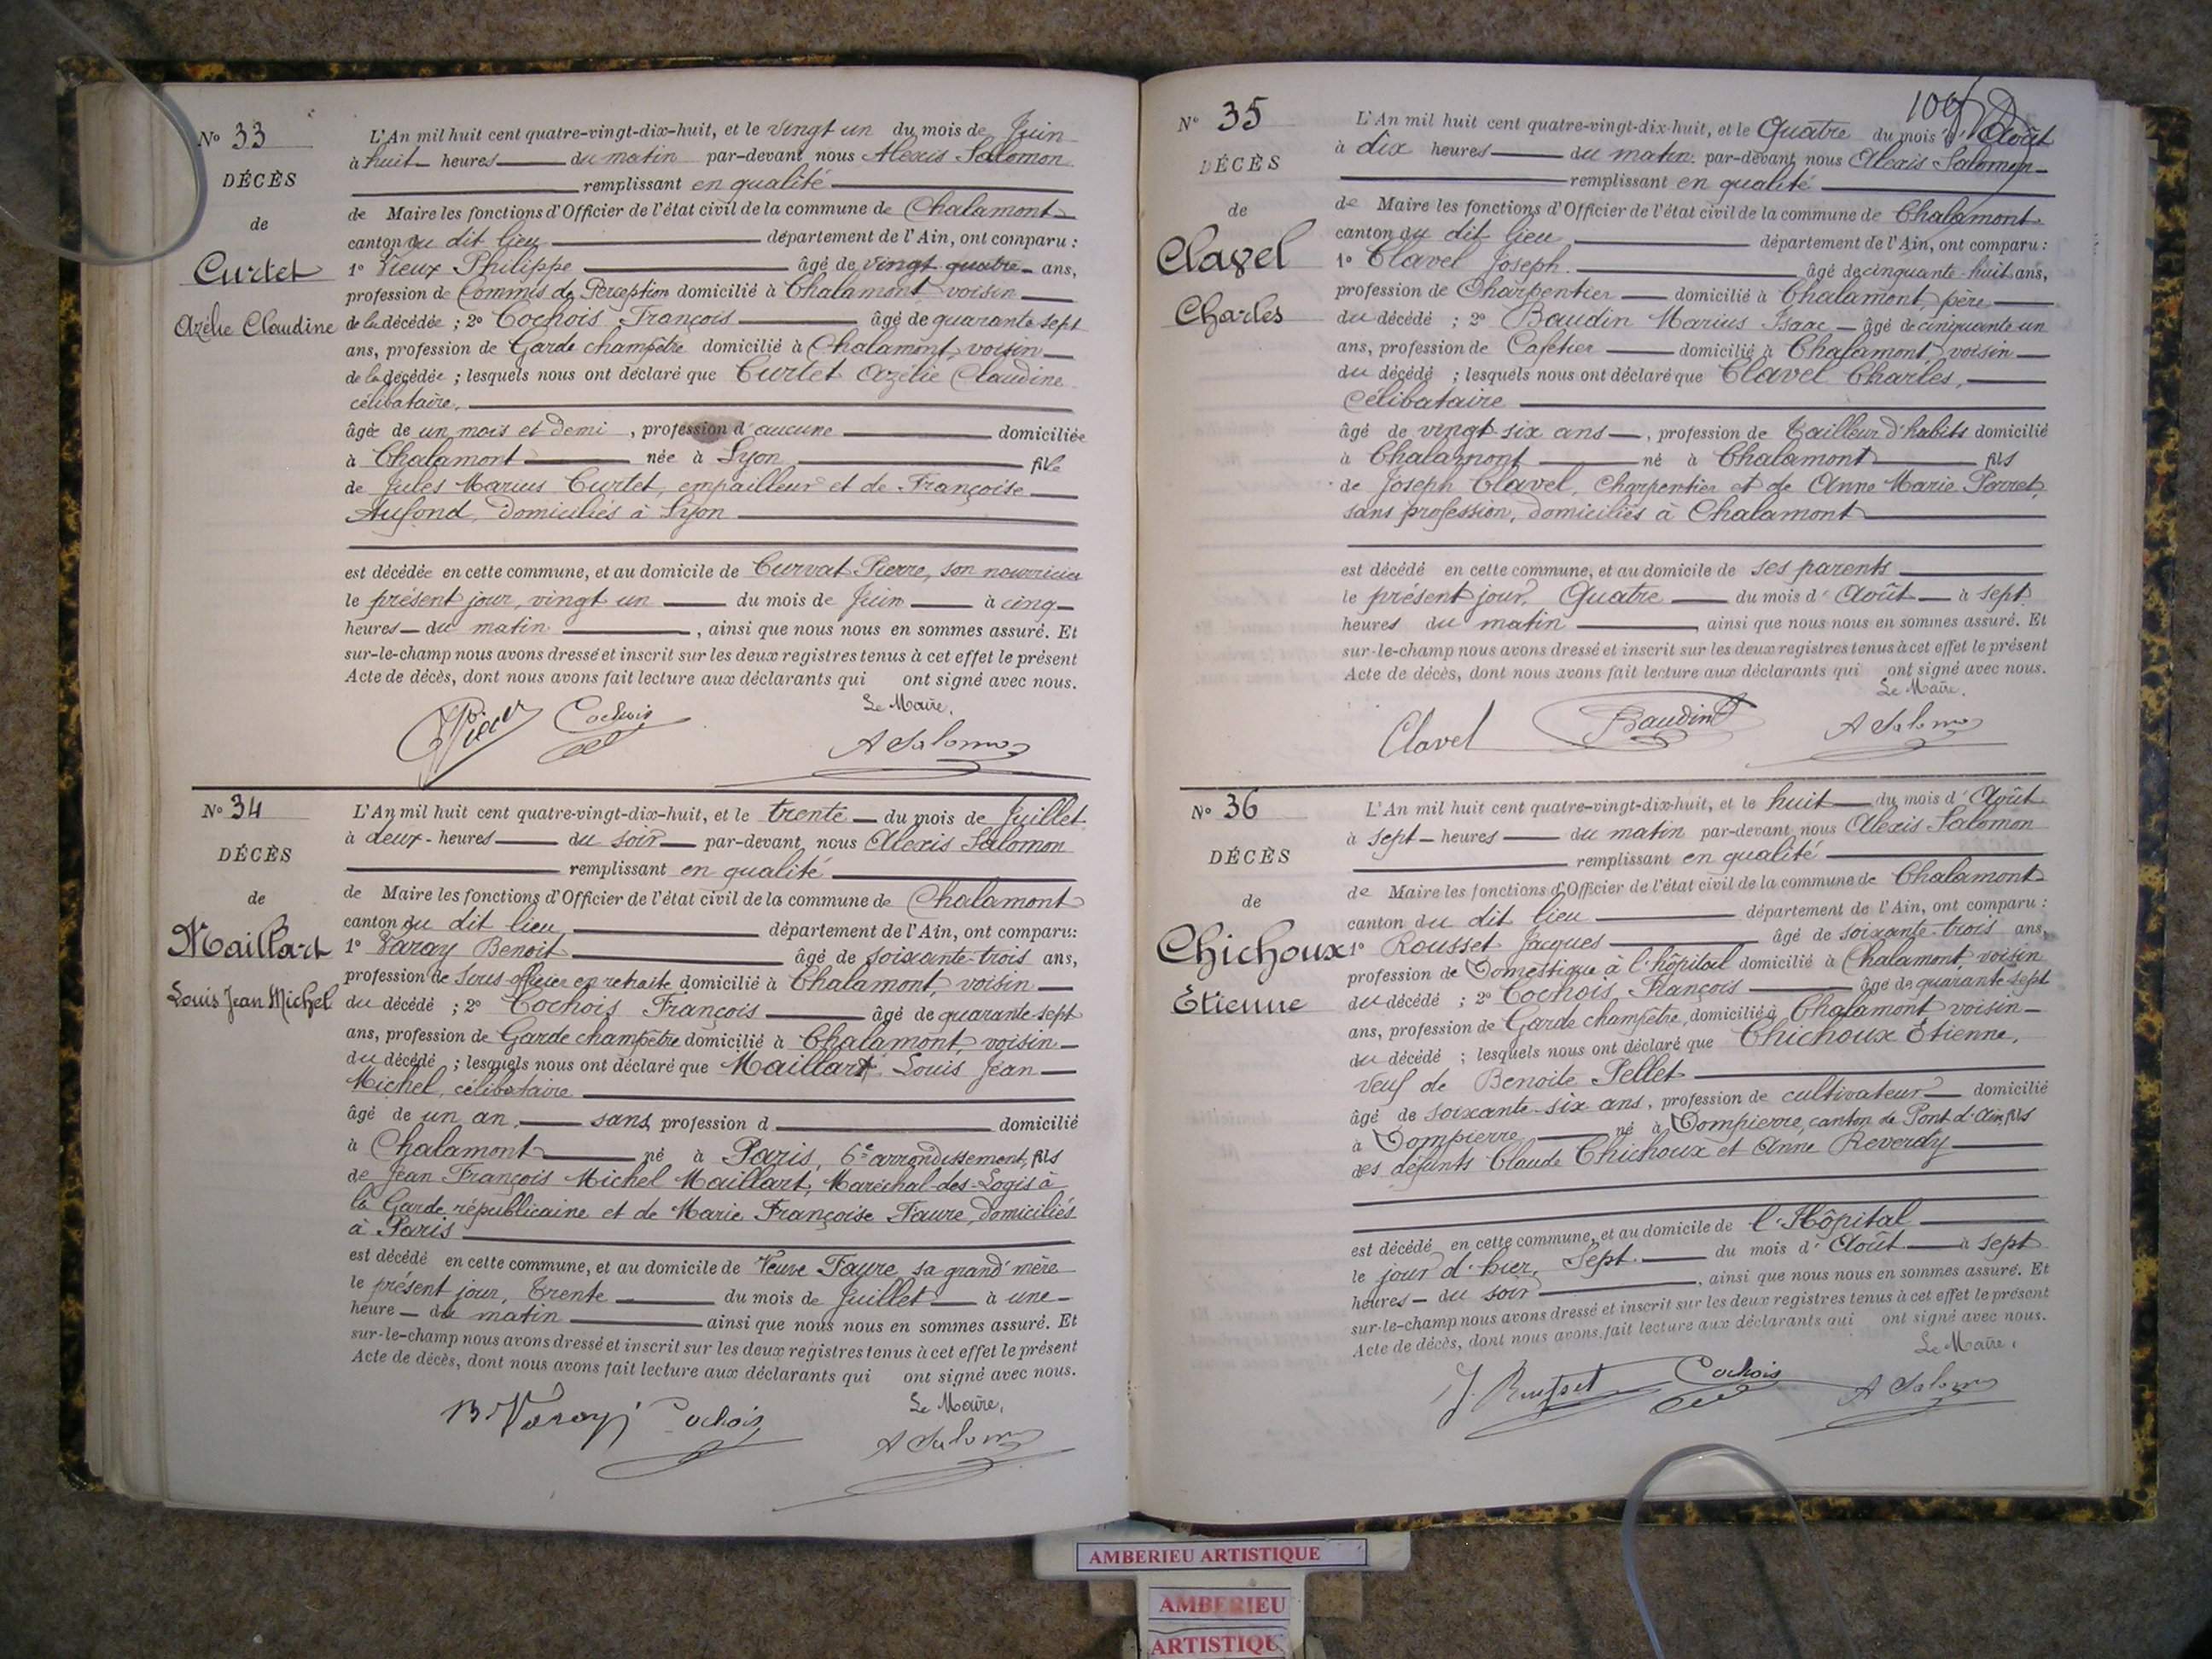 Nº 33
DÉCÈS
de
Curtet
Azélie Claudine
L'An mil huit cent quatre-vingt-dix-huit, et le vingt un du mois de Juin
à huit heures du matin par-devant nous Alexis Salomon
remplissant en qualité
de Maire les fonctions d'Officier de l'état civil de la commune de Chalamont
canton du dit lieu département de l'Ain, ont comparu :
1º Vieux Philippe âgé de vingt quatre ans,
profession de Commis de Perception domicilié à Chalamont voisin
de la décédée ; 2º Cochois François âgé de quarante sept
ans, profession de Garde champêtre domicilié à Chalamont, voisin
de la décédée ; lesquels nous ont déclaré que Curtet Azélie Claudine
célibataire,
âgée de un mois et demi , profession d'aucune domiciliée
à Chalamont née à Lyon fille
de Jules Marius Curtet, empailleur et de Françoise
Aufond, domiciliés à Lyon
est décédée en cette commune, et au domicile de Curvat Pierre, son nourricier
le présent jour, vingt un du mois de Juin à cinq
heures du matin , ainsi que nous nous en sommes assuré. Et
sur-le-champ nous avons dressé et inscrit sur les deux registres tenus à cet effet le présent
Acte de décès, dont nous avons fait lecture aux déclarants qui ont signé avec nous.
Le Maire,
Cochois A Salomon
Nº 34
DÉCÈS
de
Maillart
Louis Jean Michel
L'An mil huit cent quatre-vingt-dix-huit, et le trente du mois de Juillet
à deux heures du soir par-devant nous Alexis Salomon
remplissant en qualité
de Maire les fonctions d'Officier de l'état civil de la commune de Chalamont
canton du dit lieu département de l'Ain, ont comparu:
1º Varay Benoit âgé de soixante-trois ans,
profession de Sous-officier en retraite domicilié à Chalamont, voisin
du décédé ; 2º Cochois François âgé de quarante sept
ans, profession de Garde champêtre domicilié à Chalamont, voisin
du décédé ; lesquels nous ont déclaré que Maillart Louis Jean
Michel, célibataire
âgé de un an, sans profession d domicilié
à Chalamont né à Paris, 6e arrondissement, fils
de Jean François Michel Maillart, Maréchal-des-Logis à
la Garde républicaine et de Marie Françoise Faure, domiciliés
à Paris
est décédé en cette commune, et au domicile de Veuve Faure sa grand'mère
le présent jour, Trente du mois de Juillet à une
heure du matin ainsi que nous nous en sommes assuré. Et
sur-le-champ nous avons dressé et inscrit sur les deux registres tenus à cet effet le présent
Acte de décès, dont nous avons fait lecture aux déclarants qui ont signé avec nous.
Le Maire,
B. Varay Cochois A Salomon
Nº 35
DÉCÈS
de
Clavel
Charles
L'An mil huit cent quatre-vingt-dix-huit, et le Quatre du mois d'Août
à dix heures du matin par-devant nous Alexis Salomon
remplissant en qualité
de Maire les fonctions d'Officier de l'état civil de la commune de Chalamont
canton du dit lieu département de l'Ain, ont comparu :
1º Clavel Joseph. âgé de cinquante-huit ans,
profession de Charpentier domicilié à Chalamont, père
du décédé ; 2º Baudin Marius Isaac âgé de cinquante un
ans, profession de Cafetier domicilié à Chalamont voisin
du décédé ; lesquels nous ont déclaré que Clavel Charles,
célibataire
âgé de vingt-six ans , profession de Tailleur d'habits domicilié
à Chalamont né à Chalamont fils
de Joseph Clavel, Charpentier et de Anne Marie Perret,
sans profession, domiciliés à Chalamont
est décédé en cette commune, et au domicile de ses parents
le présent jour, Quatre du mois d'Août à sept
heures du matin , ainsi que nous nous en sommes assuré. Et
sur-le-champ nous avons dressé et inscrit sur les deux registres tenus à cet effet le présent
Acte de décès, dont nous avons fait lecture aux déclarants qui ont signé avec nous.
Le Maire,
Clavel Baudin A Salomon
Nº 36
DÉCÈS
de
Chichoux
Etienne
L'An mil huit cent quatre-vingt-dix-huit, et le huit du mois d'Août
à sept heures du matin par-devant nous Alexis Salomon
remplissant en qualité
de Maire les fonctions d'Officier de l'état civil de la commune de Chalamont
canton du dit lieu département de l'Ain, ont comparu :
1º Rousset Jacques âgé de soixante-trois ans,
profession de Domestique à l'hôpital domicilié à Chalamont voisin
du décédé ; 2º Cochois François âgé de quarante-sept
ans, profession de Garde champêtre, domicilié à Chalamont voisin
du décédé ; lesquels nous ont déclaré que Chichoux Etienne,
veuf de Benoite Pellet
âgé de soixante-six ans, profession de cultivateur domicilié
à Dompierre né à Dompierre, canton de Pont-d'Ain, fils
des défunts Claude Chichoux et Anne Reverdy
est décédé en cette commune, et au domicile de l'Hôpital
le jour d'hier, Sept. du mois d'Août à sept
heures du soir , ainsi que nous nous en sommes assuré. Et
sur-le-champ nous avons dressé et inscrit sur les deux registres tenus à cet effet le présent
Acte de décès, dont nous avons fait lecture aux déclarants qui ont signé avec nous.
Le Maire,
J. Rousset Cochois A Salomon
AMBERIEU ARTISTIQUE
AMBERIEU
ARTISTIQUE